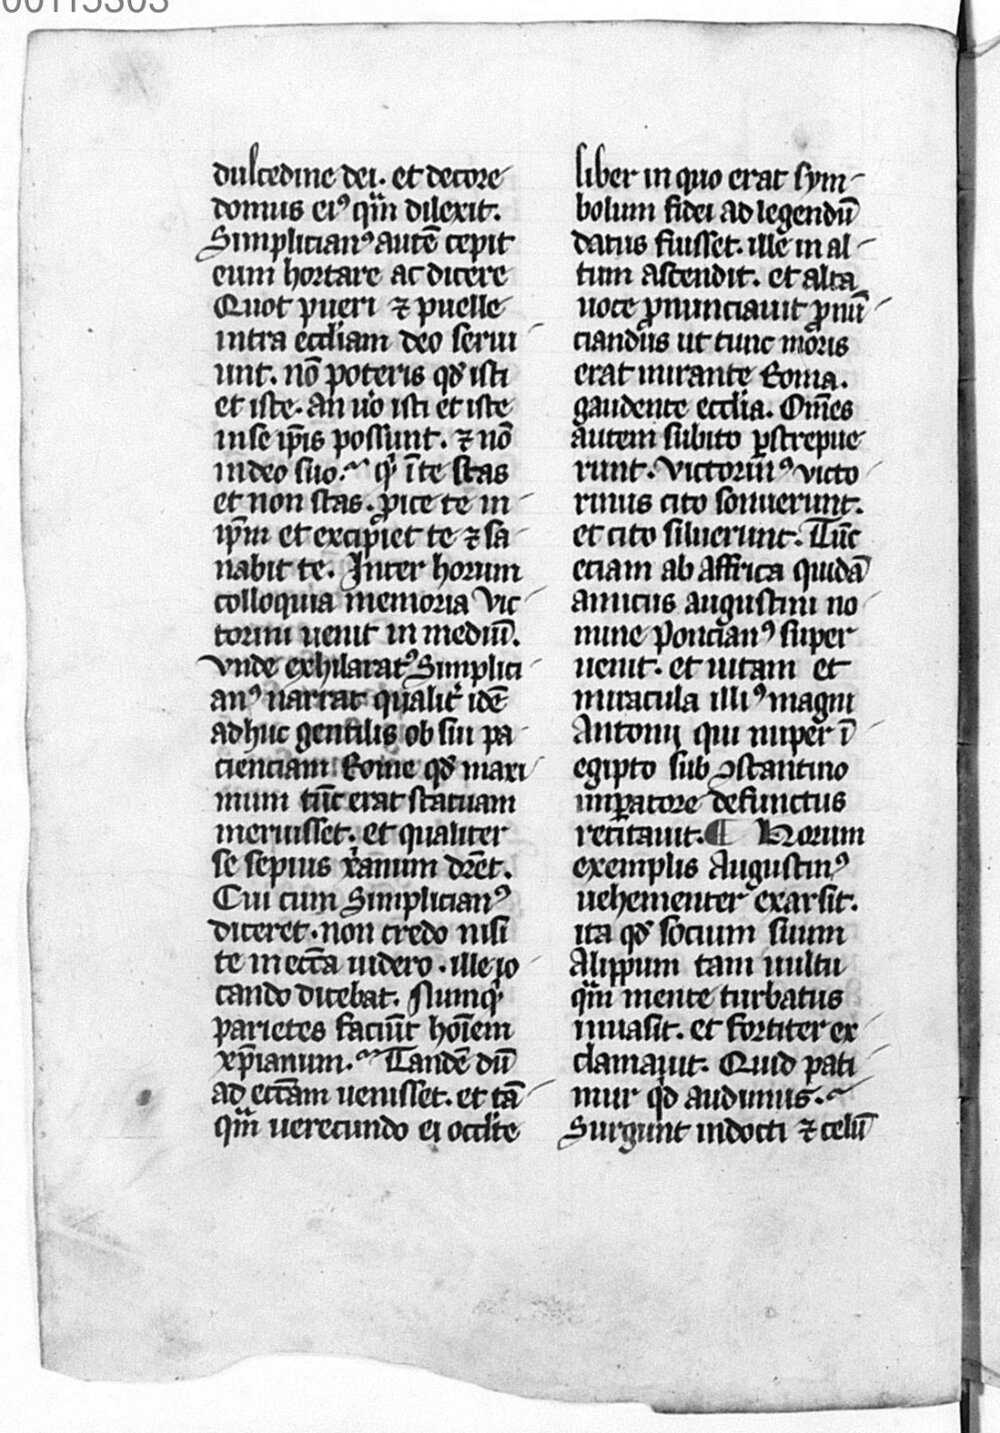 00115303
dulcedine dei. et decore
domus eiꝰ qm̄ dilexit.
Simplicianꝰ autē cepit
eum hortare ac dicere
Quot pueri ⁊ puelle
intra eccl̄iam deo serui
unt. nō poteris qđ isti
et iste. an u̾o isti et iste
in se ip̄is possunt. ⁊ nō
in deo suo. qͥ īte stas
et non stas. ꝓice te in
ip̄m et excipiet te ⁊ sa
nabit te. Inter horum
colloquia memoria Vic
torini uenit in mediū.
Vnde exhilaratꝰ Simplici
anꝰ narrat qualit̾ idē
adhuc gentilis ob sui pa
cienciam Rome qđ maxi
mum tūc erat statuam
meruisset. et qualiter
se sepius xp̄ianum dr̄et.
Cui cum Simplicianꝰ
diceret. non credo nisi
te in ecc̄a uidero. ille io
cando dicebat. Numqͥ
parietes faciūt hoīem
xp̄ianum. Tandē dū
ad ecc̄am uenisset. et tā
qm̄ uerecundo ei occl̄te
liber in quo erat sym
bolum fidei ad legendū
datus fuisset. ille in al
tum ascendit. et alta
uoce ꝓnunciauit ꝓnū
ciandus ut tunc moris
erat mirante Roma.
gaudente eccl̄ia. Om̄es
autem subito ꝑstrepue
runt. Victorinꝰ victo
rinus cito sonuerunt.
et cito siluerunt. Tūc
eciam ab affrica quidā
amicus augustini no
mine Poncianꝰ super
uenit. et uitam et
miracula illiꝰ magni
Antonij qui nuper ī
egipto sub ꝯstantino
imꝑatore defunctus
recitauit. ¶ Horum
exemplis Augustinꝰ
uehementer exarsit.
ita qđ socium suum
Alippum tam uultu
qm̄ mente turbatus
inuasit. et fortiter ex
clamauit. Quid pati
mur qđ audimus.
Surgunt indocti ⁊ celū